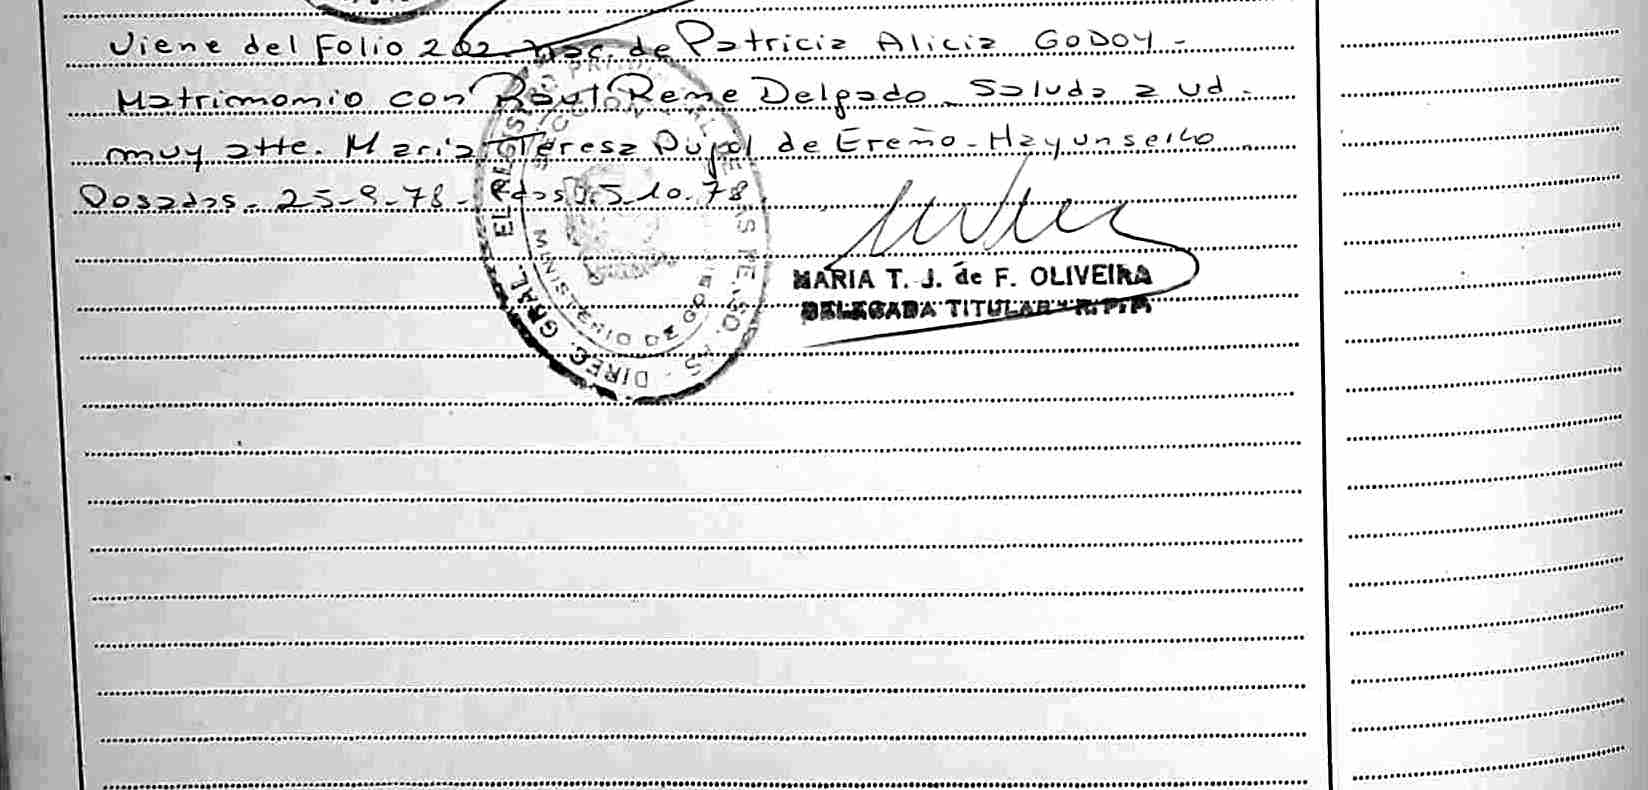 Viene del Folio 202 nac. de Patricia Alicia GODOY -
Matrimonio con Raul Rene Delgado - Saluda a Ud.
muy atte. Maria Teresa Pujol de Ereño - Hay un sello
Posadas - 25-9-78 - Pdas 5-10-78
MARIA T. J. de F. OLIVEIRA
DELEGADA TITULAR - R.P.P.
DIREC. GRAL. EL REGISTRO PROV. DE LAS PERSO
MINIS DE GOB